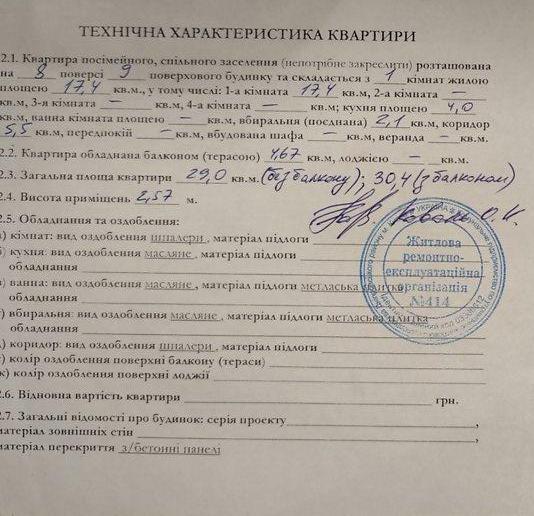 ТЕХНІЧНА ХАРАКТЕРИСТИКА КВАРТИРИ
2.1. Квартира посімейного, спільного заселення (непотрібне закреслити) розташована
на 8 поверсі 9 поверхового будинку та складається з 1 кімнат жилою
площею 17,4 кв.м., у тому числі: 1-а кімната 17,4 кв.м, 2-а кімната —
кв.м, 3-я кімната — кв.м, 4-а кімната — кв.м; кухня площею 4,0
кв.м, ванна кімната площею — кв.м, вбиральня (поєднана) 2,1 кв.м, коридор
5,5 кв.м, передпокій — кв.м, вбудована шафа — кв.м, веранда — кв.м.
2.2. Квартира обладнана балконом (терасою) 4,67 кв.м, лоджією — кв.м.
2.3. Загальна площа квартири 29,0 кв.м. (без балкону); 30,4 (з балконом)
2.4. Висота приміщень 2,57 м.
2.5. Обладнання та оздоблення:
) кімнат: вид оздоблення шпалери, матеріал підлоги
) кухня: вид оздоблення масляне, матеріал підлоги
обладнання
) ванна: вид оздоблення масляне, матеріал підлоги метласька плитка
обладнання
) вбиральня: вид оздоблення масляне, матеріал підлоги метласька плитка
обладнання
) коридор: вид оздоблення шпалери, матеріал підлоги
) колір оздоблення поверхні балкону (тераси)
к) колір оздоблення поверхні лоджії
2.6. Відновна вартість квартири грн.
2.7. Загальні відомості про будинок: серія проекту ,
матеріал зовнішніх стін ,
матеріал перекриття з/бетонні панелі
УКРАЇНА
Житлова
ремонтно-
експлуатаційна
організація
№414